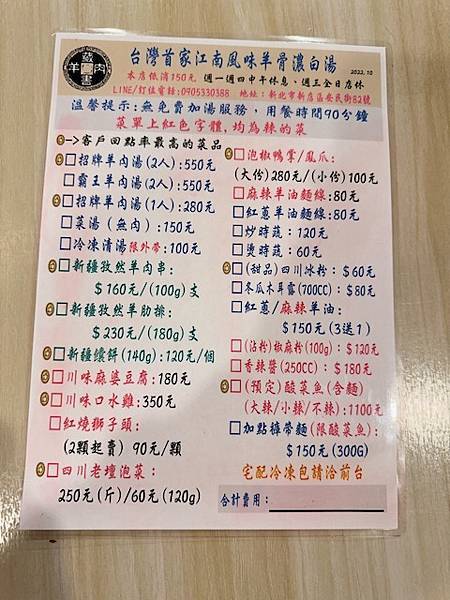 藏圖羊肉書
台灣首家江南風味羊骨濃白湯
2022.10
本店低消150元 週一週四中午休息、週三全日店休
LINE/訂位電話:0905330388 地址:新北市新店區安民街82號
溫馨提示:無免費加湯服務,用餐時間90分鐘
菜單上紅色字體,均為辣的菜
->客戶回點率最高的菜品
□招牌羊肉湯(2人):550元
□霸王羊肉湯(2人):550元
□招牌羊肉湯(1人):280元
□菜湯(無肉):150元
□冷凍清湯限外帶:100元
□新疆孜然羊肉串:
$160元/(100g)支
□新疆孜然羊肋排:
$230元/(180g)支
□新疆餅(140g):120元/個
□川味麻婆豆腐:180元
□川味口水雞:350元
□紅燒獅子頭:
(2顆起賣) 90元/顆
□四川老壇泡菜:
250元(斤)/60元(120g)
□泡椒鴨掌/鳳爪:
(大份)280元/(小份)100元
□麻辣羊油麵線:80元
□紅蔥羊油麵線:80元
□炒時蔬:120元
□燙時蔬:60元
□(甜品)四川冰粉:$60元
□冬瓜木耳露(700CC):$80元
□紅蔥/麻辣羊油:
$150元(3送1)
□(沾粉)椒麻粉(100g):$120元
□香辣醬(250CC):$180元
□(預定)酸菜魚(含麵)
(大辣/小辣/不辣):1100元
□加點褲帶麵(限酸菜魚):
$150元(300G)
宅配冷凍包請洽前台
合計費用: